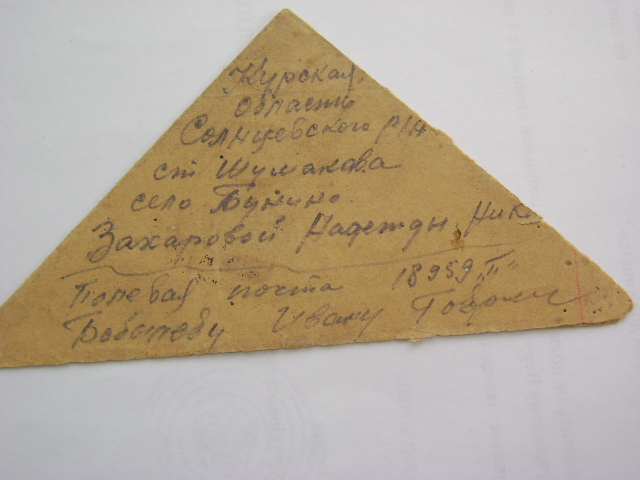 Курская
область
Солнцевского р/н
ст Шумакова
село Бунино
Захаровой Надежды Ник
Полевая почта 18959 „П"
Ивану